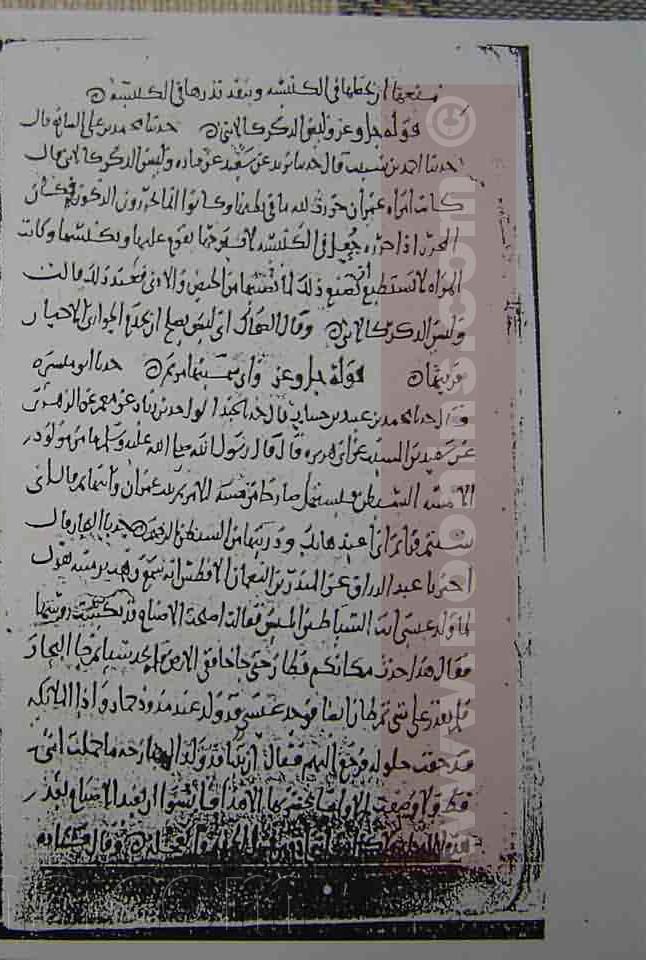 منعها ان يجعلها في الكنيسه وتنفد نذرها في الكنيسه
قوله جل وعز وليس الذكر كالانثى حدثنا محمد بن علي الصايغ قال
حدثنا احمد بن شبيب قال حدثنا يزيد عن سعيد عن قتاده وليس الذكر كالانثى قال
كانت امراه عمران حررت لله ما في بطنها وكانوا انما يحررون الذكور فكان
المحرر اذا حرر جعل في الكنيسه لا يبرحها يقوم عليها ويكنسها وكانت
المراه لا تستطيع ان تصنع ذلك لما يصيبها من الحيض والاذى فعند ذلك قالت
وليس الذكر كالانثى وقال الضحاك اي ليس يصلح ان يخدم الجواري الاحبار
قوله جل وعز واني سميتها مريم حدثنا ابو ميسره
قال حدثنا محمد بن عبيد بن حساب قال حدثنا عبد الواحد بن زياد عن معمر عن الزهري
عن سعيد بن المسيب عن ابي هريره قال قال رسول الله صلى الله عليه وسلم ما من مولود
الا مسه الشيطن فيستهل صارخا من مسه الا مريم بنت عمران وابنها ثم قال ان
شيتم فاقراوا اني اعيذها بك وذريتها من الشيطن الرجيم قال
اخبرنا عبد الرزاق عن المنذر بن النعمان الافطس انه سمع وهب بن منبه يقول
لما ولد عيسى اتت الشياطين ابليس فقالت اصبحت الاصنام قد نكست روسها
فقال هذا حدث مكانكم فطار حتى جا خافقي الارض فلم يجد شيا ثم جا البحار
فلم يقدر على شي ثم طار ايضا فوجد عيسى قد ولد عند مذود حمار واذا الملايكه
قد حفت حوله فرجع اليهم فقال ان نبيا قد ولد البارحه ما حملت انثى
قط ولا وضعت الا وانا بحضرتها الا هذا فايسوا ان تعبد الاصنام بعد
www.noonis.com ©